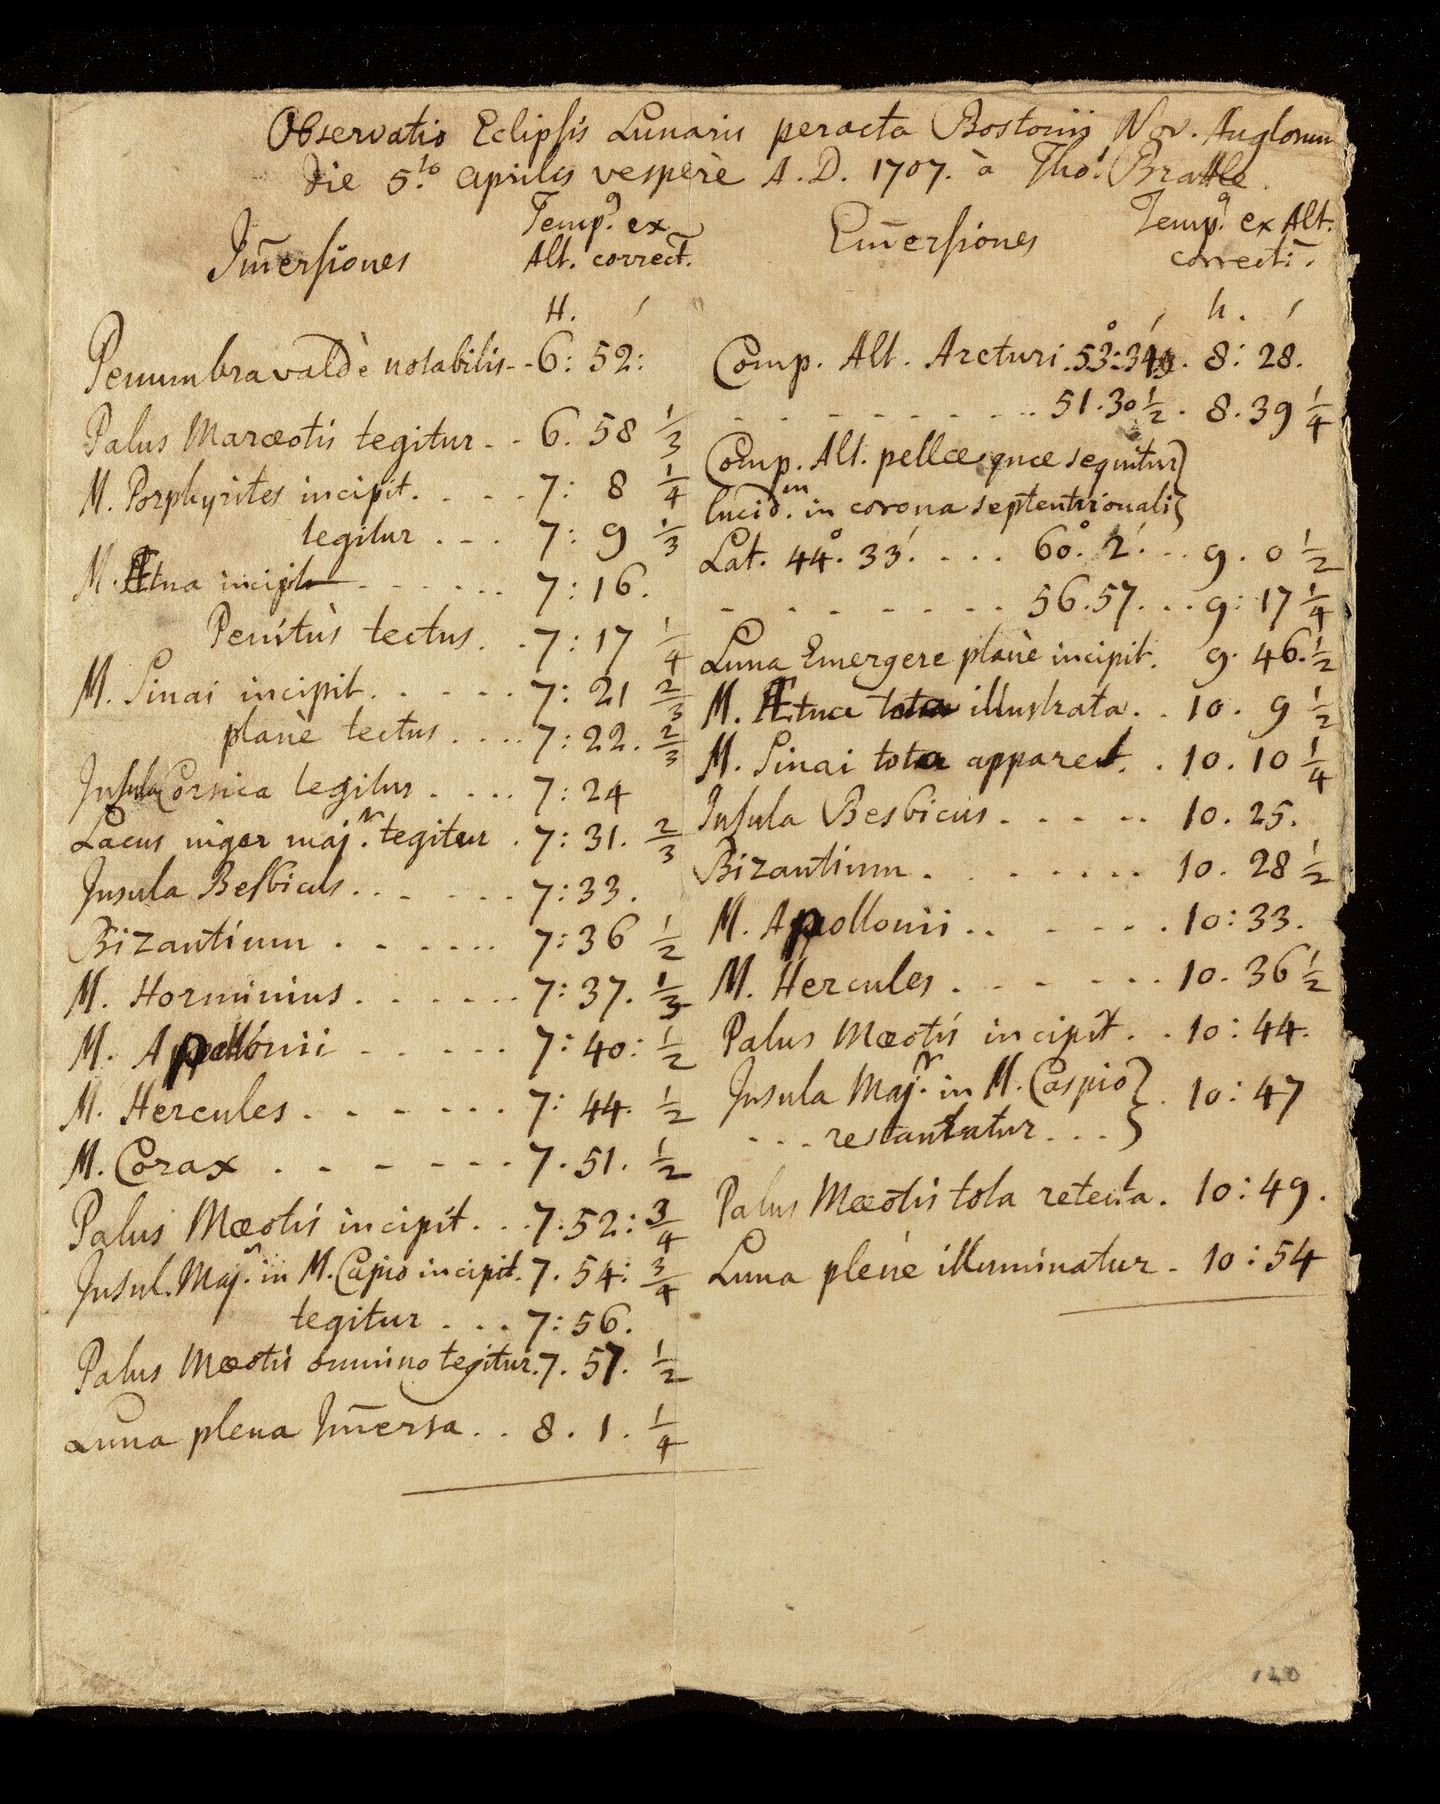 Observatio Eclipsis Lunaris peracta Bostonij Nov. Anglorum
die 5.to Aprilis vesperè A.D. 1707. à Tho: Brattle.
Im̄ersiones
Temp.9 ex
Alt. correct̄.
H. ′
Penumbra valdè notabilis - - 6: 52:
Palus Maræotis tegitur - - 6. 58 1/3
M. Porphyrites incipit. . . . . 7: 8 1/4
tegitur . . . 7: 9 1/3
M. Ætna incipit - - - - - . . . 7: 16.
Penitùs tectus. . . 7: 17 1/4
M. Sinai incipit. . . . . . . 7: 21 2/3
planè tectus . . . . 7: 22. 2/3
Insula Corsica tegitur . . . . . 7: 24
Lacus niger maj.r tegitur . 7: 31. 2/3
Insula Besbicus. . . . . . . 7: 33.
Bizantium . . . . . . . 7: 36 1/2
M. Horminius. . . . . . . 7: 37. 1/3
M. Apollonii - - - - . . . 7: 40: 1/2
M. Hercules. . . . . . . 7: 44. 1/2
M. Corax . . . . . . . 7. 51. 1/2
Palus Mæotis incipit. . . 7. 52: 3/4
Insul. Maj.r in M. Capio incipit. 7. 54: 3/4
tegitur . . . 7: 56.
Palus Mæotis omnino tegitur. 7. 57. 1/2
Luna plena Im̄ersa. . . 8. 1. 1/4
Em̄ersiones
Temp.9 ex Alt.
correcti.
° ′ h. ′
Comp. Alt. Arcturi. 53: 34. 8: 28.
- - - - - - - - . . 51. 30 1/2. 8. 39 1/4
Comp. Alt. pellæ, quæ sequitur }
lucid.m in corona septentrionali }
Lat. 44°. 33′. . . . . 60°. 2′. . . 9. 0 1/2
- - - - - - - . . 56. 57. . . 9: 17 1/4
Luna Emergere planè incipit. 9. 46. 1/2
M. Ætna tota illustrata. . 10. 9 1/2
M. Sinai tota apparet. . 10. 10 1/4
Insula Besbicus . . . . . . 10. 25.
Bizantium . . . . . . . . 10. 28 1/2
M. Apollonii . . . . . . . 10: 33.
M. Hercules . . . . . . . 10. 36 1/2
Palus Mæotis incipit. . . 10: 44.
Insula Maj.r in M. Caspio } . 10: 47
. . . restantatur . . . }
Palus Mæotis tota retecta. 10: 49.
Luna plenè illuminatur. 10: 54